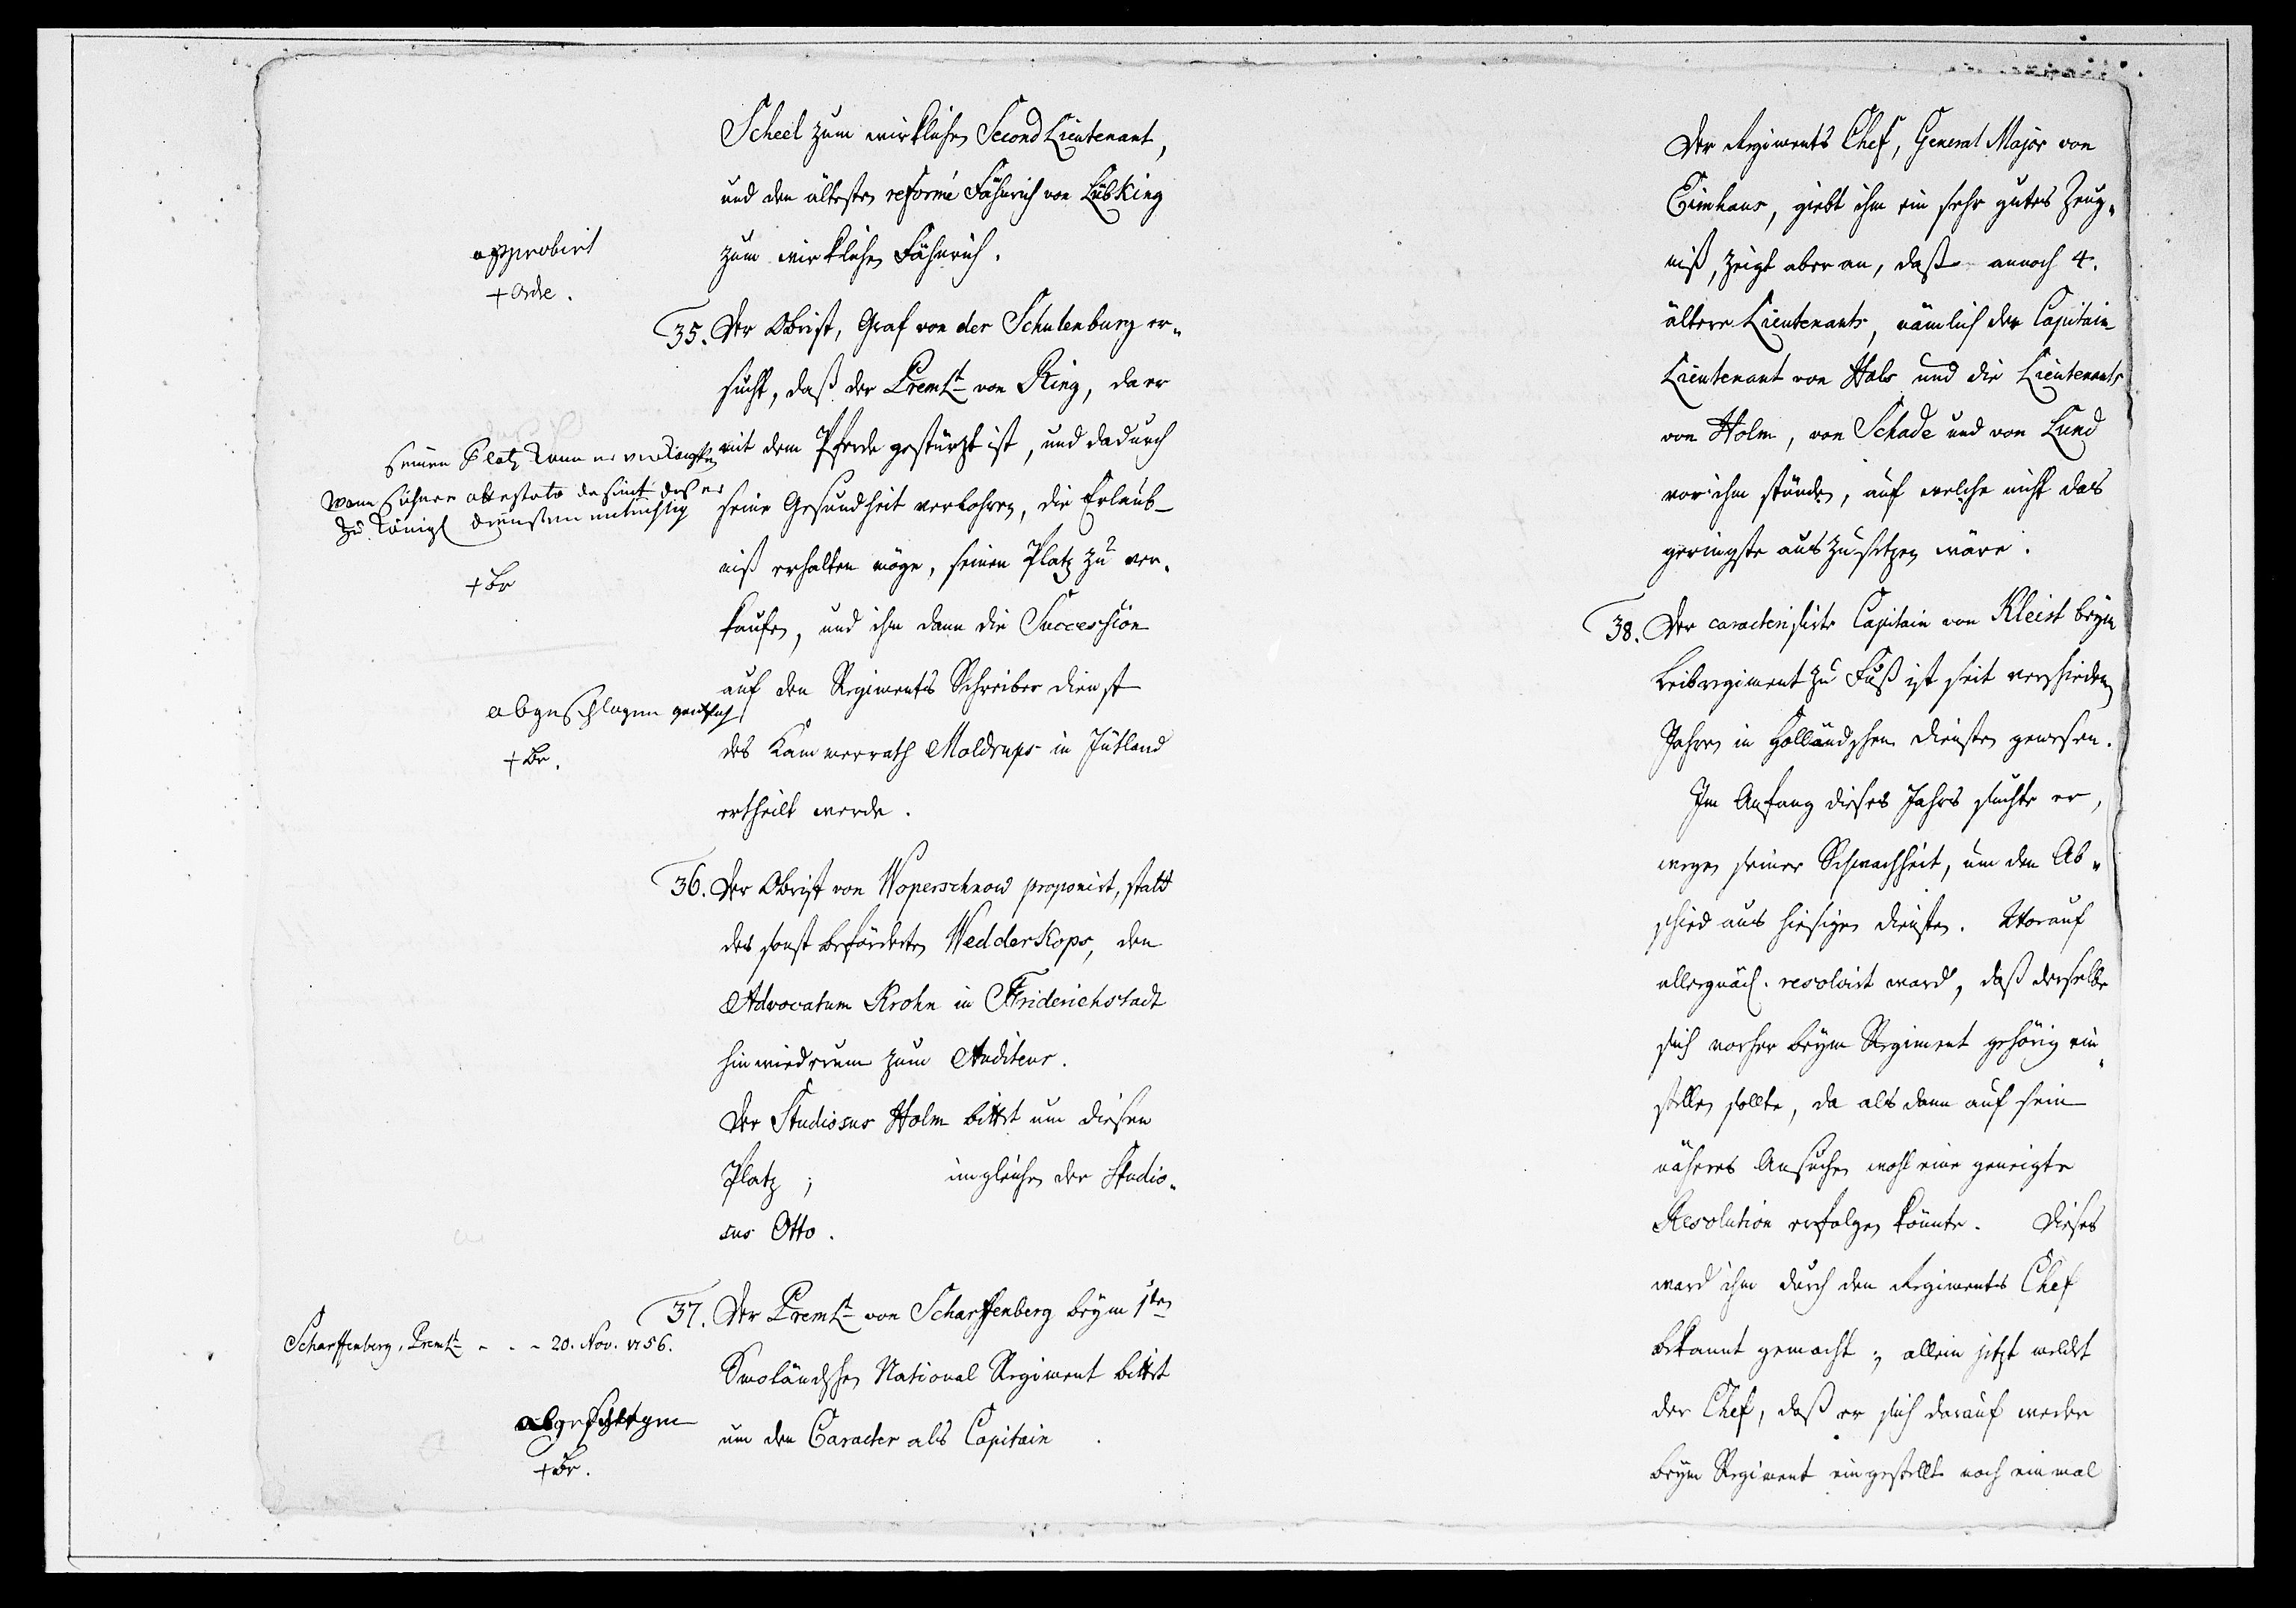 Scheel zum wirklichen Second Lieutenant,
und den ältesten reformé Fähnrich von Lübking
zum wirklichen Fähnrich.
approbirt
+ Orde.
35. Der Obrist, Graf von der Schulenburg er-
sucht, daß der PremLt von Ring, da er
mit dem Pferde gestürzt ist, und dadurch
seine Gesundheit verlohren, die Erlaub-
niß erhalten möge, seinen Platz zu ver-
kaufen, und ihm dann die Succession
auf den Regiments Schreiber Dienst
des Kammerrath Moldrups in Jütland
ertheilt werde.
seinen Platz kann er verkaufen
wann sichere attestate da sint das er
zu Königl Diensten untüchtig
+ Br
abgeschlagen
+ Br.
36. Der Obrist von Woperschnow proponirt, statt
des sonst beförderten Wedderkops, den
Advocatum Krohn in Friderichstadt
hinwiedrum zum Auditeur.
Der Studiosus Holm bittet um diesen
Platz; imgleichen der Studio-
sus Otto.
37. Der PremLt von Scharffenberg beym 1ten
Smoländschen National Regiment bittet
um den Caracter als Capitain.
Scharffenberg, PremLt - - - 20. Nov. 1756.
abgeschlagen
+ Br.
Der Regiments Chef, General Major von
Eimhaus, giebt ihm ein sehr gutes Zeug-
niß, zeigt aber an, daß annoch 4.
ältere Lieutenants, nämlich der Capitain
Lieutenant von Hals und die Lieutenants
von Holm, von Schade und von Lund
vor ihm stünden, auf welche nicht das
geringste auszusetzen wäre.
38. Der caracterisirte Capitain von Kleist beym
Leibregiment zu Fuß ist seit verschiedenen
Jahren in Holländschen Diensten gewesen.
Im Anfang dieses Jahrs suchte er,
wegen seiner Schwachheit, um den Ab-
schied aus hiesigen Diensten. Worauf
allergnäd. resolvirt ward, daß derselbe
sich vorher beym Regiment gehörig ein-
stellen sollte, da alsdann auf sein
näheres Ansuchen wohl eine geneigte
Resolution erfolgen könnte. Dieses
ward ihm durch den Regiments Chef
bekannt gemacht; allein jetzt meldet
der Chef, daß er sich darauf weder
beym Regiment eingestellt noch einmal